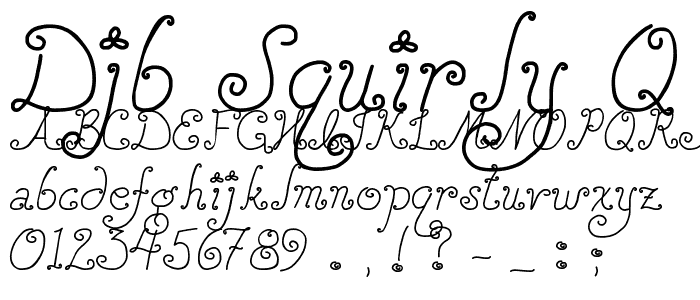 Djb Squirly Q
ABCDEFGHIJKLMNOPQRS
abcdefghijklmnopqrstuvwxyz
0123456789 . , ! ? - _ : ;